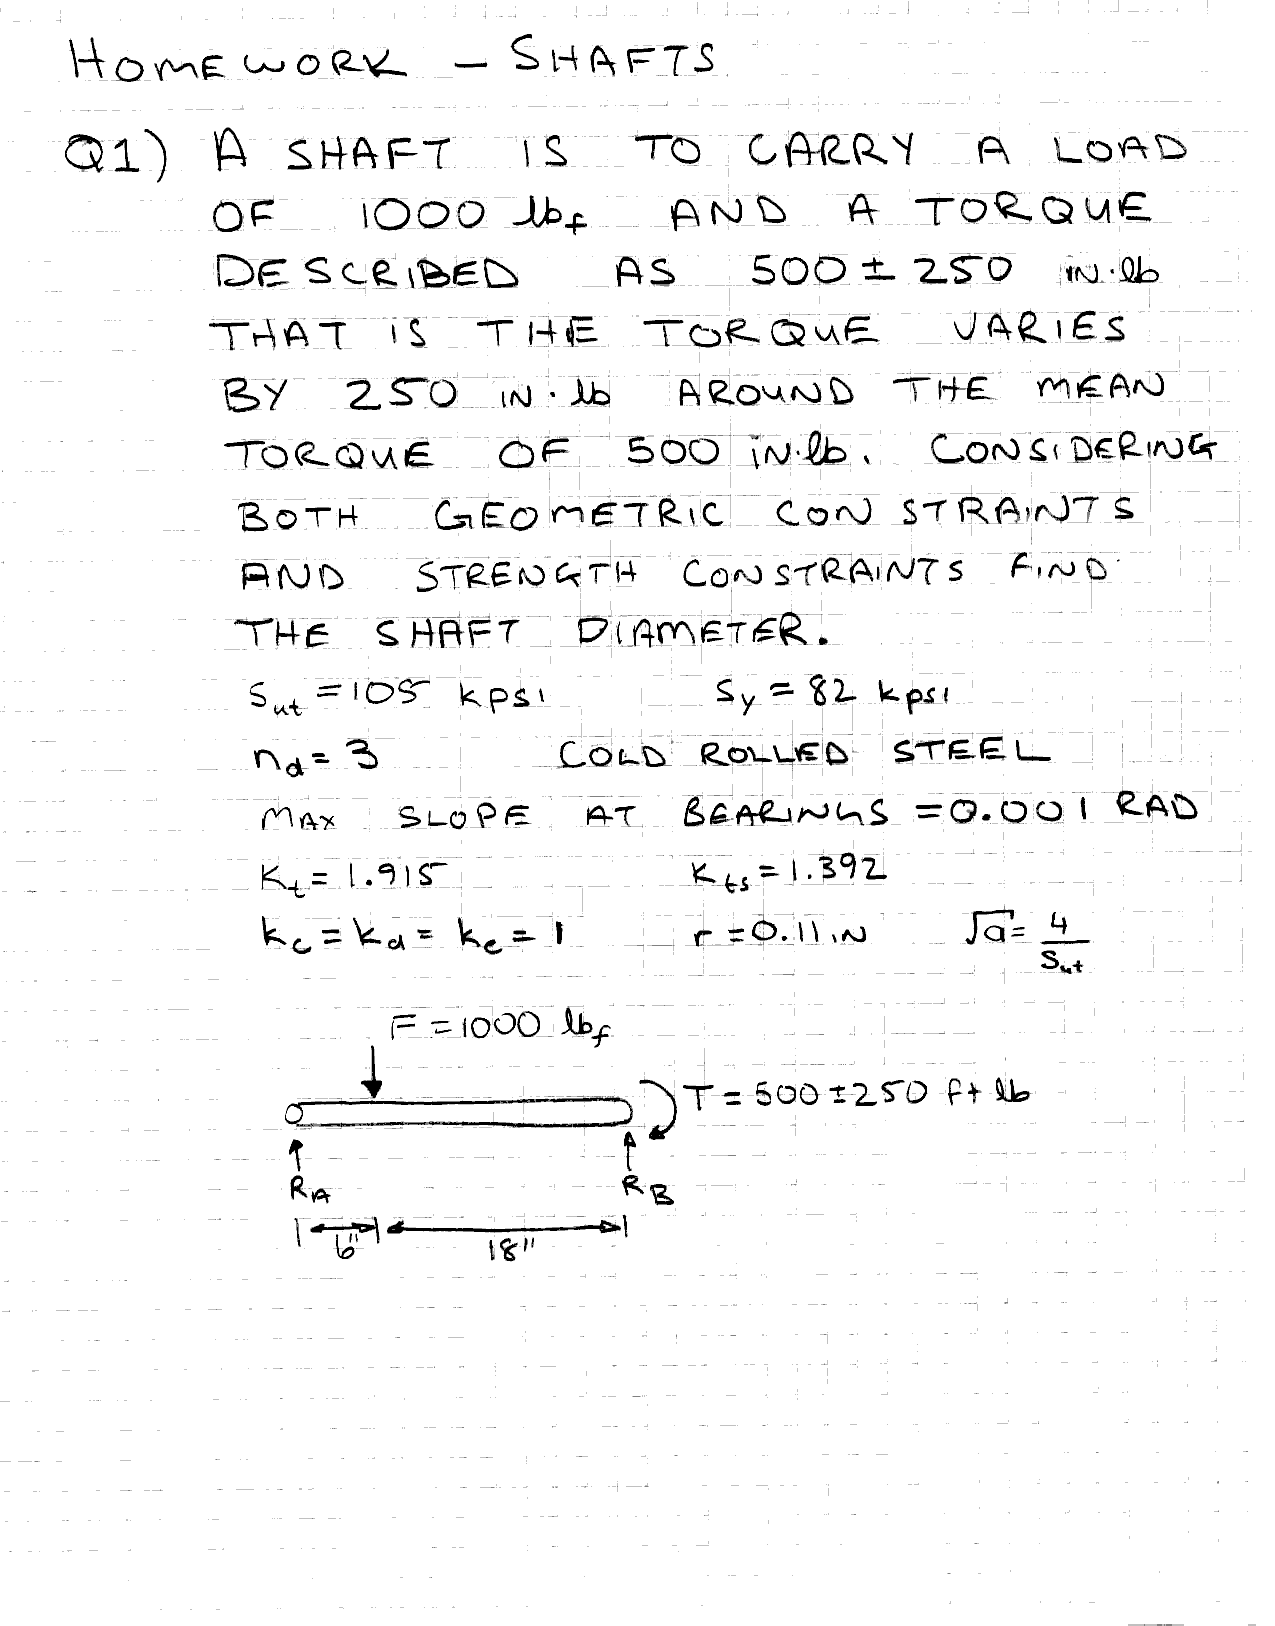 HOMEWORK - SHAFTS
Q1) A SHAFT IS TO CARRY A LOAD
OF 1000 lbf AND A TORQUE
DESCRIBED AS 500 ± 250 IN·lb
THAT IS THE TORQUE VARIES
BY 250 IN·lb AROUND THE MEAN
TORQUE OF 500 IN·lb. CONSIDERING
BOTH GEOMETRIC CONSTRAINTS
AND STRENGTH CONSTRAINTS FIND
THE SHAFT DIAMETER.
Sut = 105 kpsi Sy = 82 kpsi
nd = 3 COLD ROLLED STEEL
MAX SLOPE AT BEARINGS = 0.001 RAD
Kt = 1.915 Kts = 1.392
kc = kd = ke = 1 r = 0.11 IN √a = 4/Sut
F = 1000 lbf
T = 500 ± 250 ft lb
RA RB
6" 18"